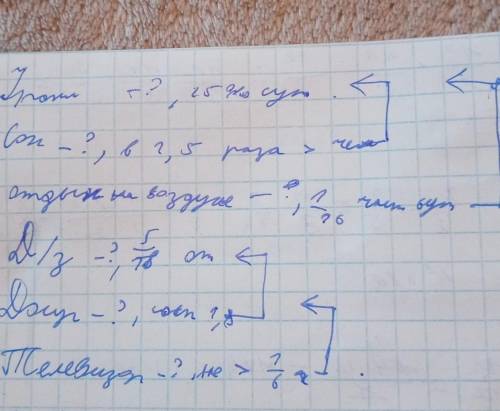 Уроки - ?, 25% сут.
Сон - ?, в 1,5 раза > чем
отдых на воздухе - ?, 1/16 часть сут
Д/з - ?, 5/18 от
Досуг - ?, 1,5
Телевизор - ?, не > 1/6